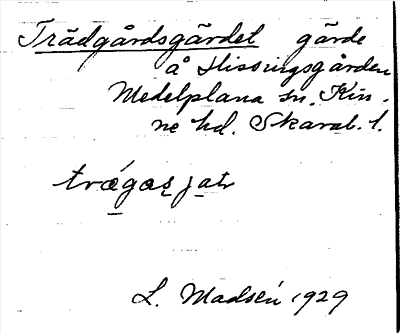 Trädgårdsgärdet gärde
å Hissingsgården
Medelplana sn. Kin-
ne hd. Skarab. l.
trǽgaʂjatr
L. Madsén 1929